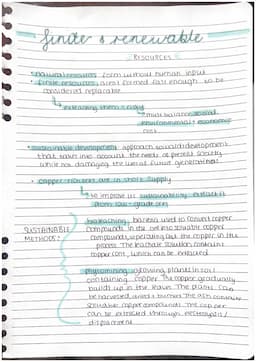 finite & renewable
RESOURCES
• natural resources form without human input
• finite resources aren't formed fast enough to be
considered replaceable
↳ extracting them is risky
↳ must balance social
environmental & economic
cost
• sustainable development approach to
that takes into account the needs of present society
while not damaging the lives of future generations
• copper rich ores are in short supply
↳ to improve its sustainability extract it
from low-grade ores
SUSTAINABLE
METHODS:
bioleaching: bacteria used to convert copper
compounds in the ore into soluble copper
compounds, separating out the copper in the
process. The leachate solution contains
copper ions, which can be extracted
phytomining: growing plants in soil
containing copper. The copper gradually
builds up in the leaves. The plants can
be harvested, dried & burned. The ash contains
soluble copper compounds. The copper
can be extracted through electrolysis /
displacement